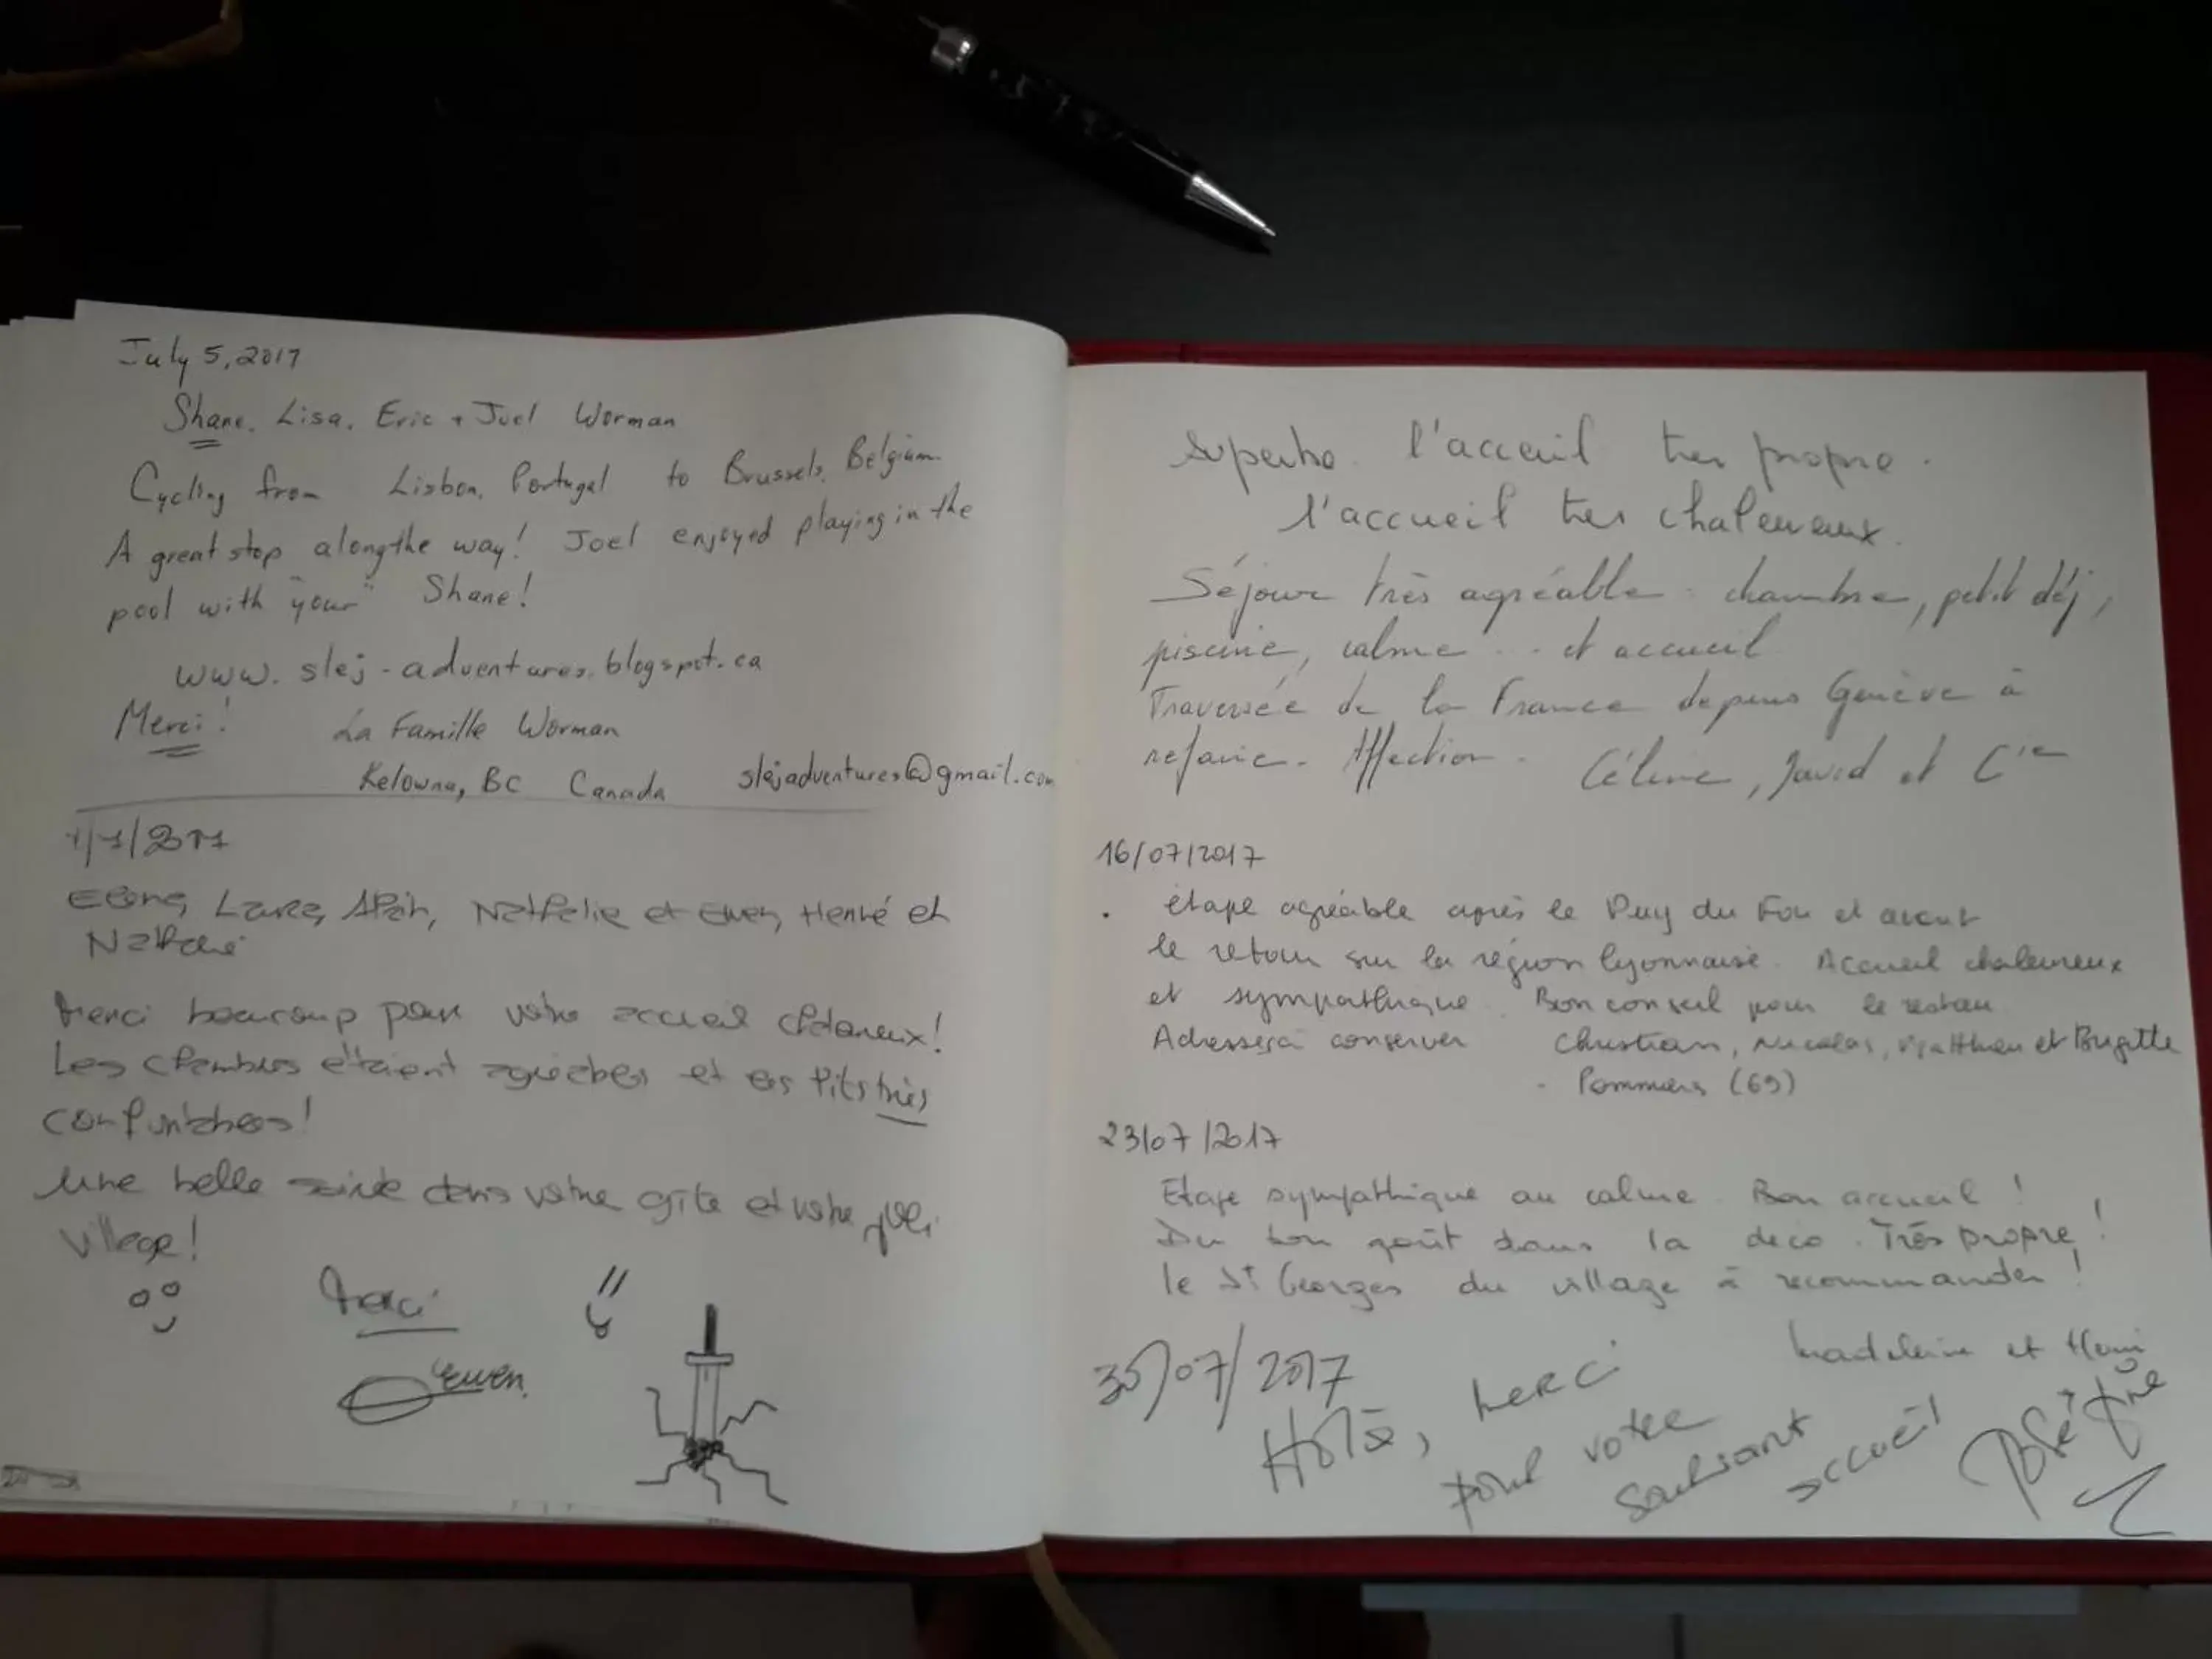 July 5, 2017
Shane, Lisa, Eric + Joel Worman
Cycling from Lisbon, Portugal to Brussels, Belgium
A great stop along the way! Joel enjoyed playing in the
pool with "your" Shane!
www.slej-adventures.blogspot.ca
Merci! La Famille Worman
Kelowna, BC Canada slejadventures@gmail.com
Nathalie et Ewen, Hervé et
Merci beaucoup pour votre accueil chaleureux!
Les chambres étaient agréables et les lits très
confortables!
Une belle soirée dans votre gîte et votre joli
village!
Merci
Ewen.
superbe l'acceuil tres propre.
l'accueil tres chaleureux.
Séjour très agréable chambre, petit déj,
piscine, calme ... et accueil
Traversée de la France depuis Genève à
refaire. Affection. Céline, David et Cie
16/07/2017
étape agréable après le Puy du Fou et avant
le retour sur la région lyonnaise. Accueil chaleureux
et sympathique. Bon conseil pour le restau
Adresse à conserver Christian, Nicolas, Matthieu et Brigitte
- Pommiers (69)
23/07/2017
Etape sympathique au calme. Bon accueil !
Du bon goût dans la déco. Très propre !
le St Georges du village à recommander !
Madeleine et Henri
30/07/2017
Holà, merci
pour votre
accueil